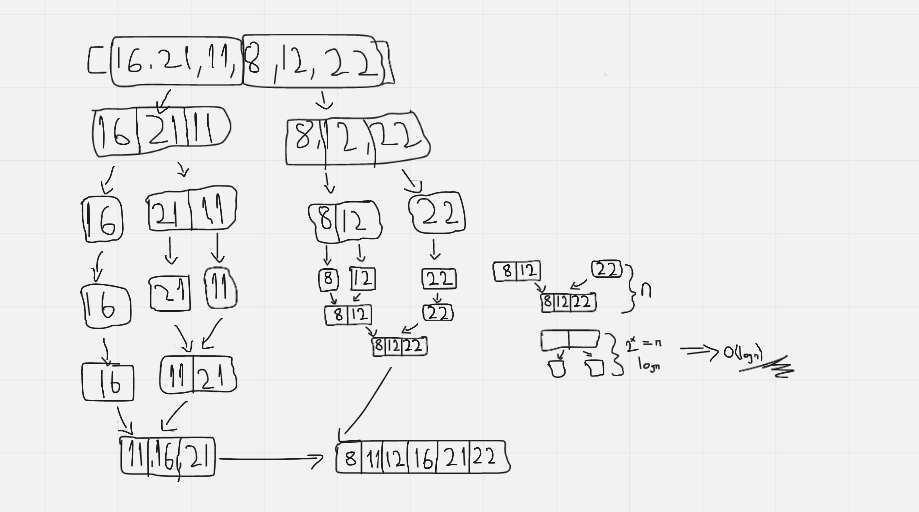 [16.21,11,8,12,22]
16 21 11
8,12,22
16
21 11
8 12
22
16
21
11
8
12
22
8 12
22
8 12 22
16
11 21
11,16,21
8 11 12 16 21 22
8 12
22
8 12 22
n
2^x = n
logn
O(logn)